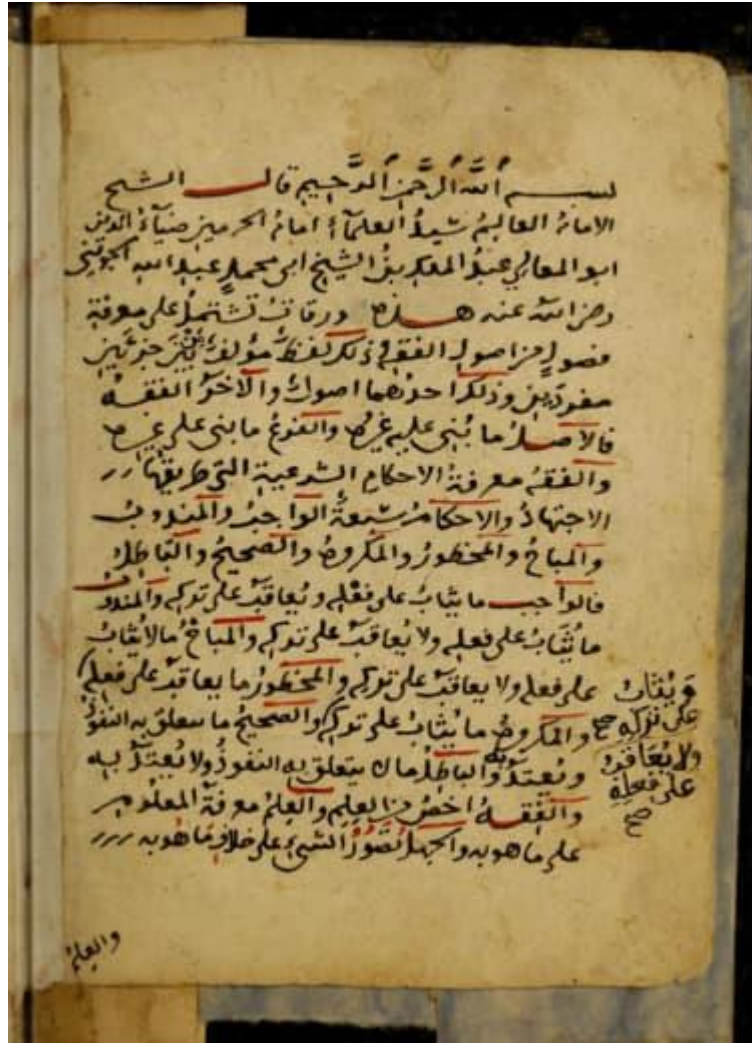 بسم اللَّه الرَّحمن الرَّحيم قال الشيخ
الامام العالم سيد العلمآء امام الحرمين ضيآء الدين
ابو المعالي عبد الملك بن الشيخ ابى محمد عبد الله الجويني
رضى الله عنه هذه ورقات تشتمل على معرفة
فصول من اصول الفقه وذلك لفظ مؤلف من جزئين
مفردين وذلك احدهما اصول والاخر الفقه
فالاصل ما يُبنى عليه غيره والفرع ما يبنى على غيره
والفقه معرفة الاحكام الشرعية التى طريقها
الاجتهاد والاحكام سبعة الواجب والمندوب
والمباح والمحظور والمكروه والصحيح والباطل
فالواجب ما يثاب على فعله ويُعاقب على تركه والمندوب
ما يُثاب على فعله ولا يُعاقب على تركه والمباح ما لا يثاب
على فعله ولا يعاقب على تركه والمحظور ما يعاقب على فعله
والمكروه ما يُثاب على تركه والصحيح ما يتعلق به النفوذ
ويُعتدّ به والباطل ما لا يتعلق به النفوذ ولا يُعتدّ به
والفقه اخص من العلم والعلم معرفة المعلوم
على ما هو به والجهل تصوّر الشىء على خلاف ما هو به
ويُثاب
على تركه صح
ولا يُعاقب
على فعله
صح
والعلم